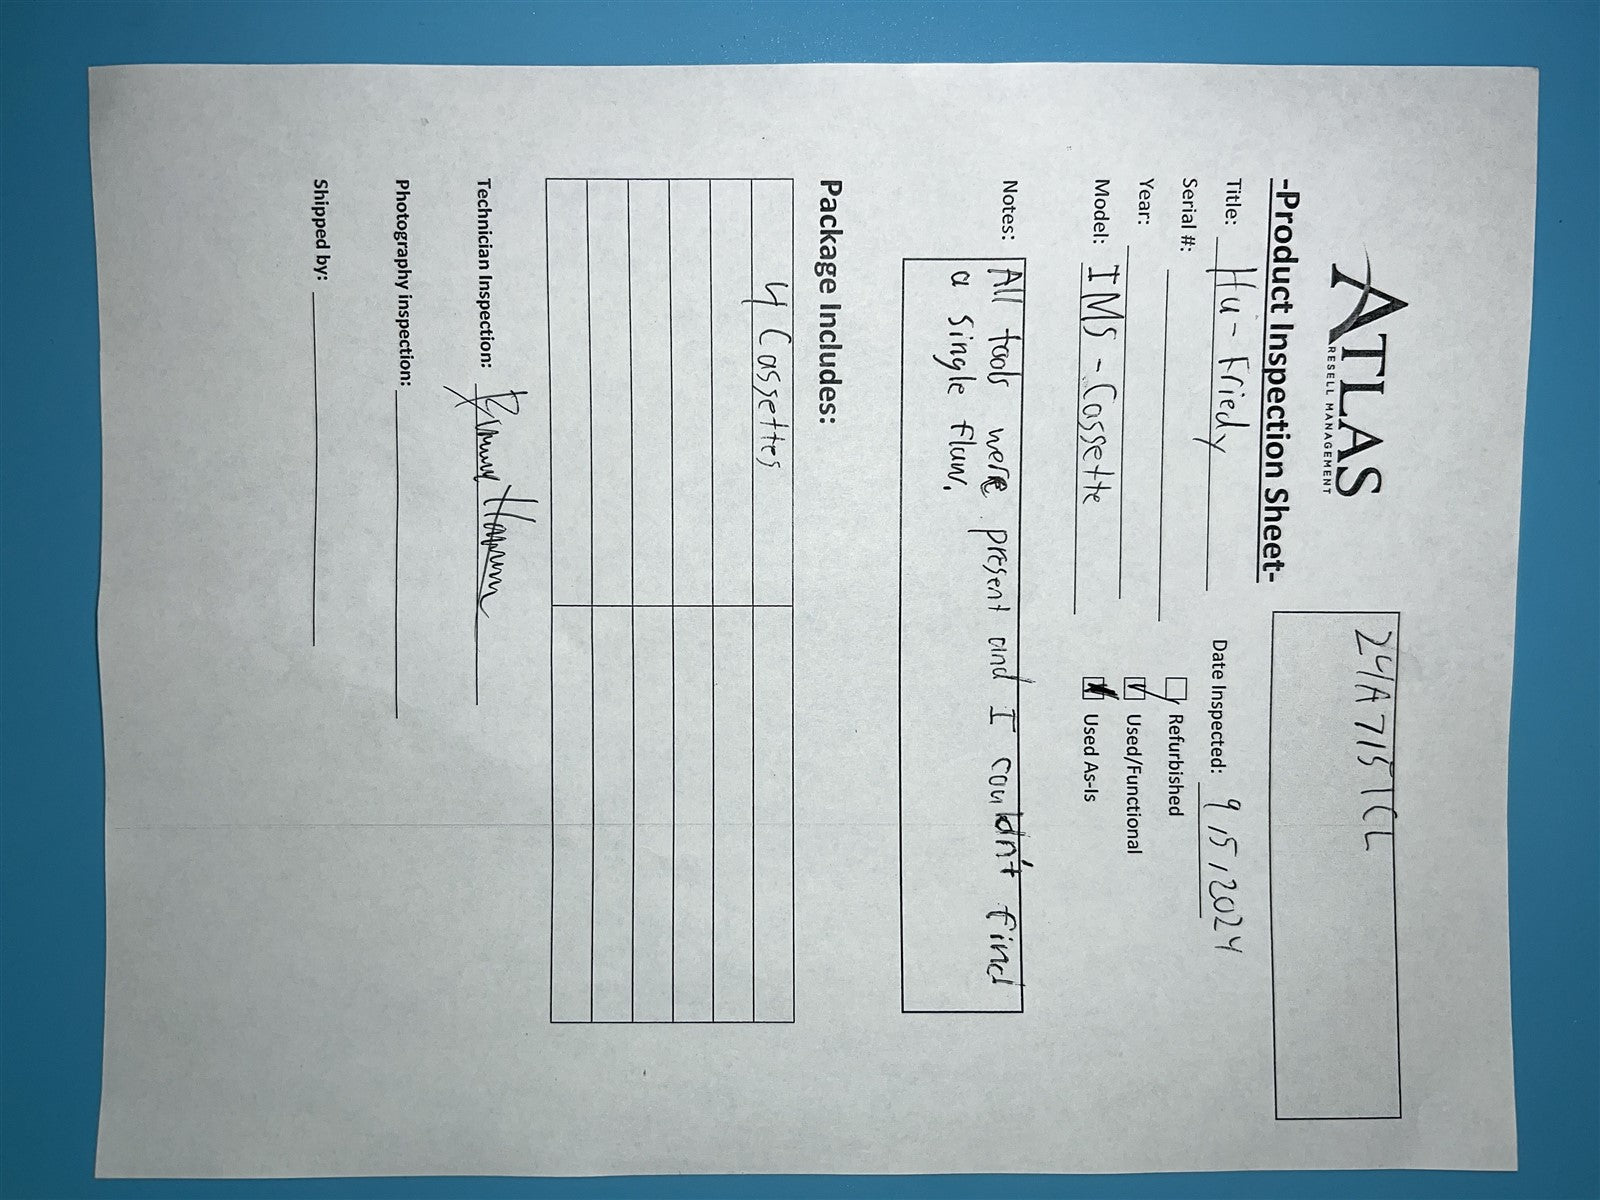 ATLAS
RESELL MANAGEMENT
24A715TCL
-Product Inspection Sheet-
Title: Hu-Friedy
Date Inspected: 9/5/2024
Serial #:
Refurbished
Year:
Used/Functional
Model: IMS-Cassette
Used As-Is
Notes: All tools were present and I couldn't find
a single flaw.
Package Includes:
4 Cassettes
Technician Inspection:
Photography inspection:
Shipped by: